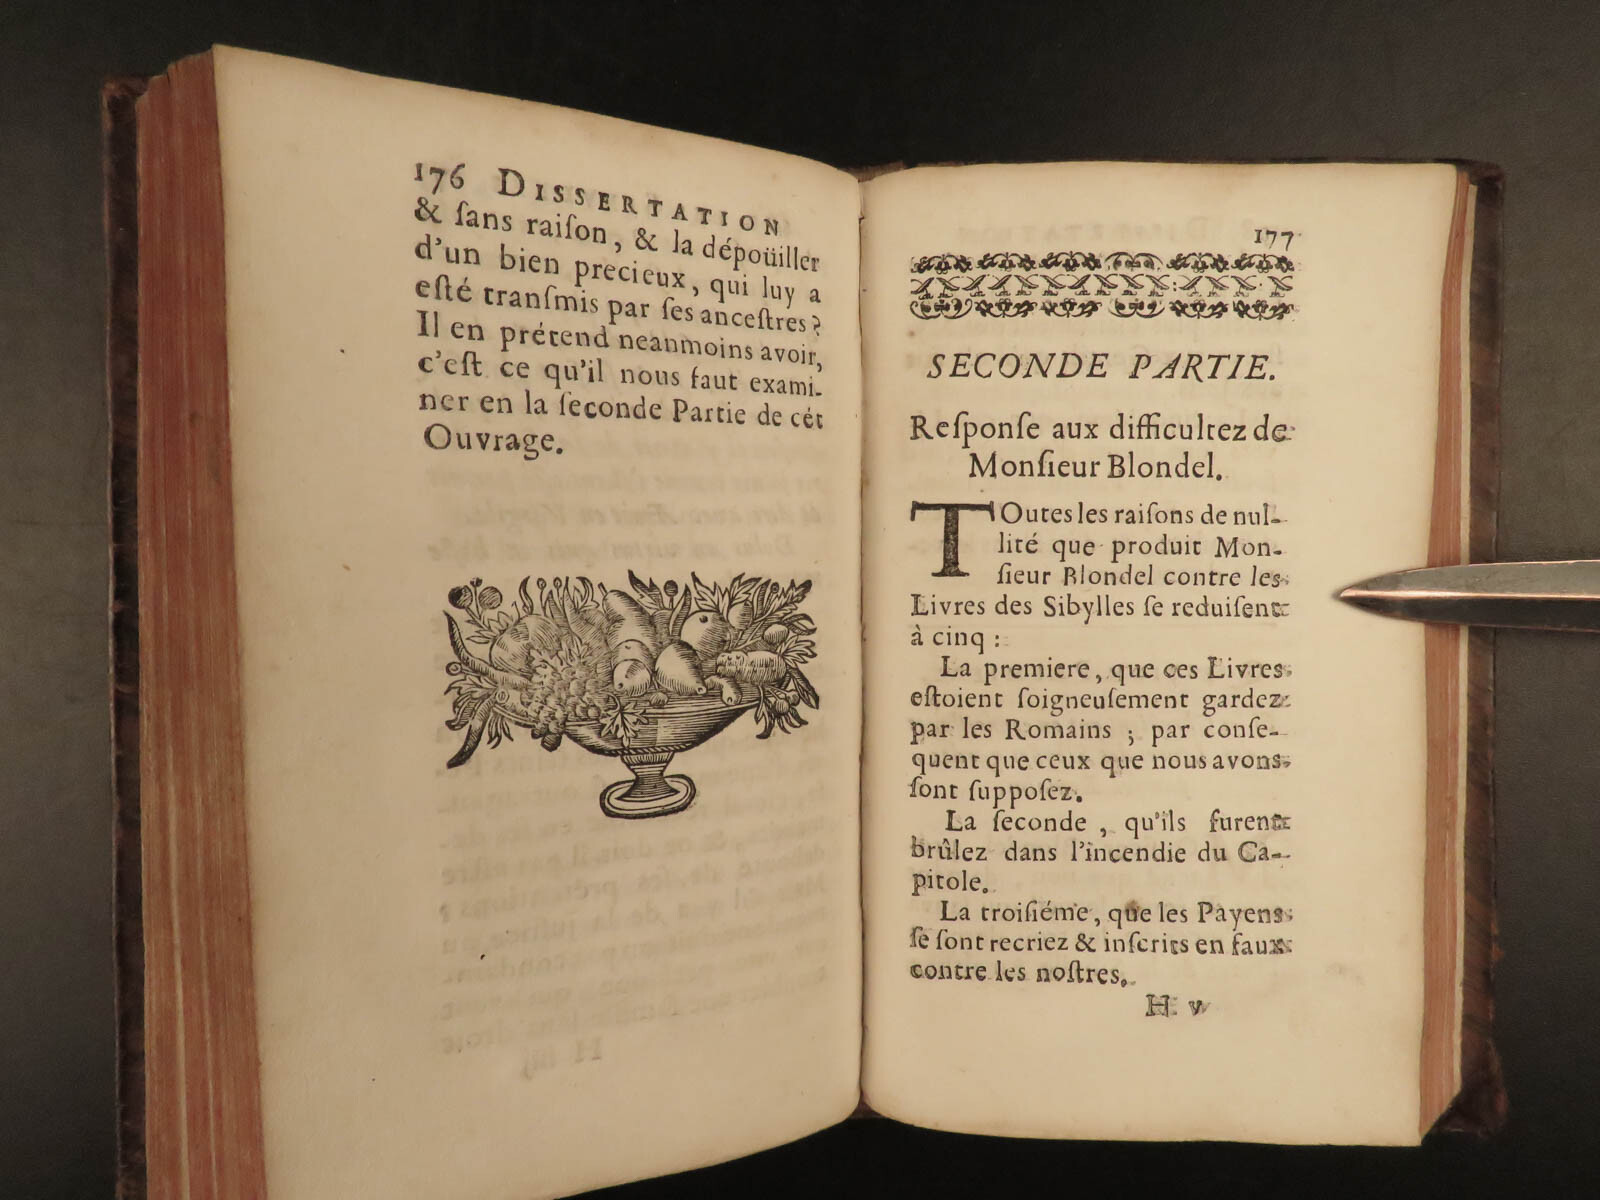 176 DISSERTATION
& ſans raiſon, & la dépoüiller
d'un bien precieux, qui luy a
eſté tranſmis par ſes anceſtres?
Il en prétend neanmoins avoir,
c'eſt ce qu'il nous faut exami-
ner en la ſeconde Partie de cét
Ouvrage.
177
SECONDE PARTIE.
Reſponſe aux difficultez de
Monſieur Blondel.
TOutes les raiſons de nul-
lité que produit Mon-
ſieur Blondel contre les
Livres des Sibylles ſe reduiſent
à cinq :
La premiere, que ces Livres
eſtoient ſoigneuſement gardez
par les Romains ; par conſe-
quent que ceux que nous avons
ſont ſuppoſez.
La ſeconde, qu'ils furent
brûlez dans l'incendie du Ca-
pitole.
La troiſiéme, que les Payens
ſe ſont recriez & inſcrits en faux
contre les noſtres.
H v